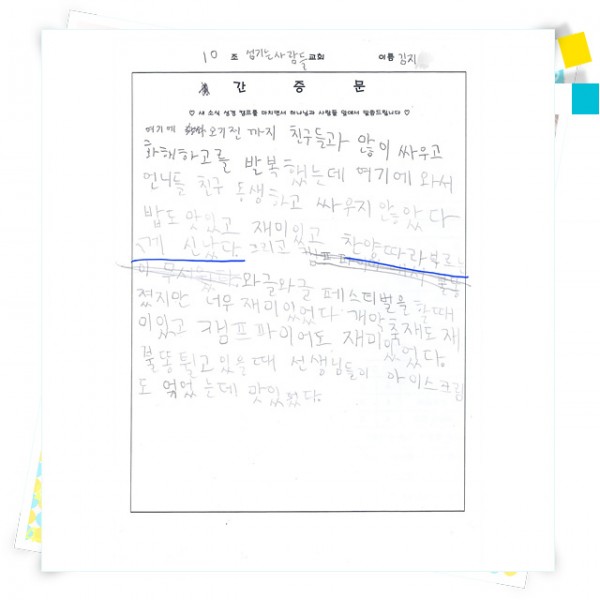 10 조 섬기는사람들교회 이름 김지
간 증 문
♡ 새 소식 성경 캠프를 마치면서 하나님과 사람들 앞에서 말씀드립니다 ♡
여기에 오기전 까지 친구들과 많이 싸우고
화해하고를 발복했는데 여기에 와서
언니들 친구 동생하고 싸우지 않았다
밥도 맛있고 재미있고 찬양따라부르는
게 신났다 그리고 캠프파이어
이 무서웠다. 와글와글 페스티벌을 할때
졌지만 너무 재미있었다 개막축재도 재
미있고 캠프파이어도 재미있었다.
불똥튈고있을때 선생님들이 아이스크림
도 얶었는데 맛있웠다.